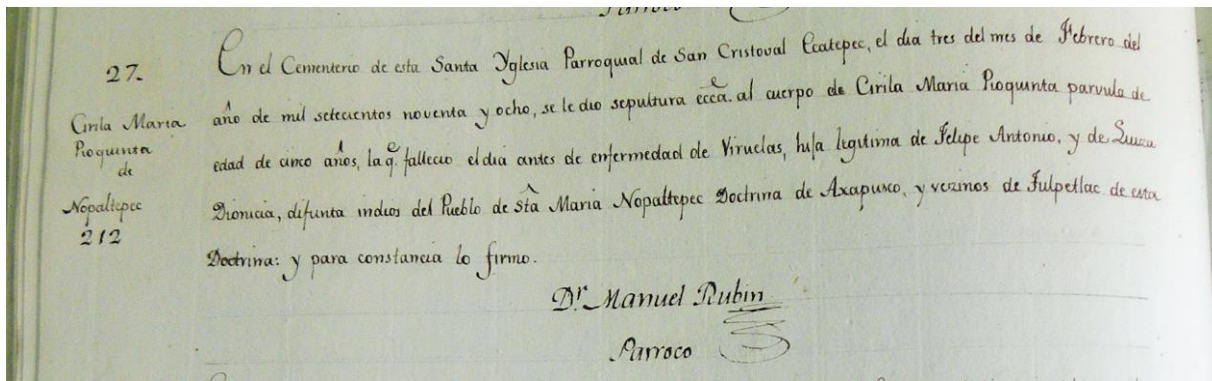 Parroco
27.
Cirila Maria
Pioquinta
de
Nopaltepec
212
En el Cementerio de esta Santa Yglesia Parroquial de San Cristoval Ecatepec, el dia tres del mes de Febrero del
año de mil setecientos noventa y ocho, se le dio sepultura ecca. al cuerpo de Cirila Maria Pioquinta parvula de
edad de cinco años, la q.e fallecio el dia antes de enfermedad de Viruelas, hija legitima de Felipe Antonio, y de Luiza
Dionicia, difunta indios del Pueblo de Sta Maria Nopaltepec Doctrina de Axapusco, y vezinos de Tulpetlac de esta
Doctrina: y para constancia lo firmo.
Dr. Manuel Rubin
Parroco